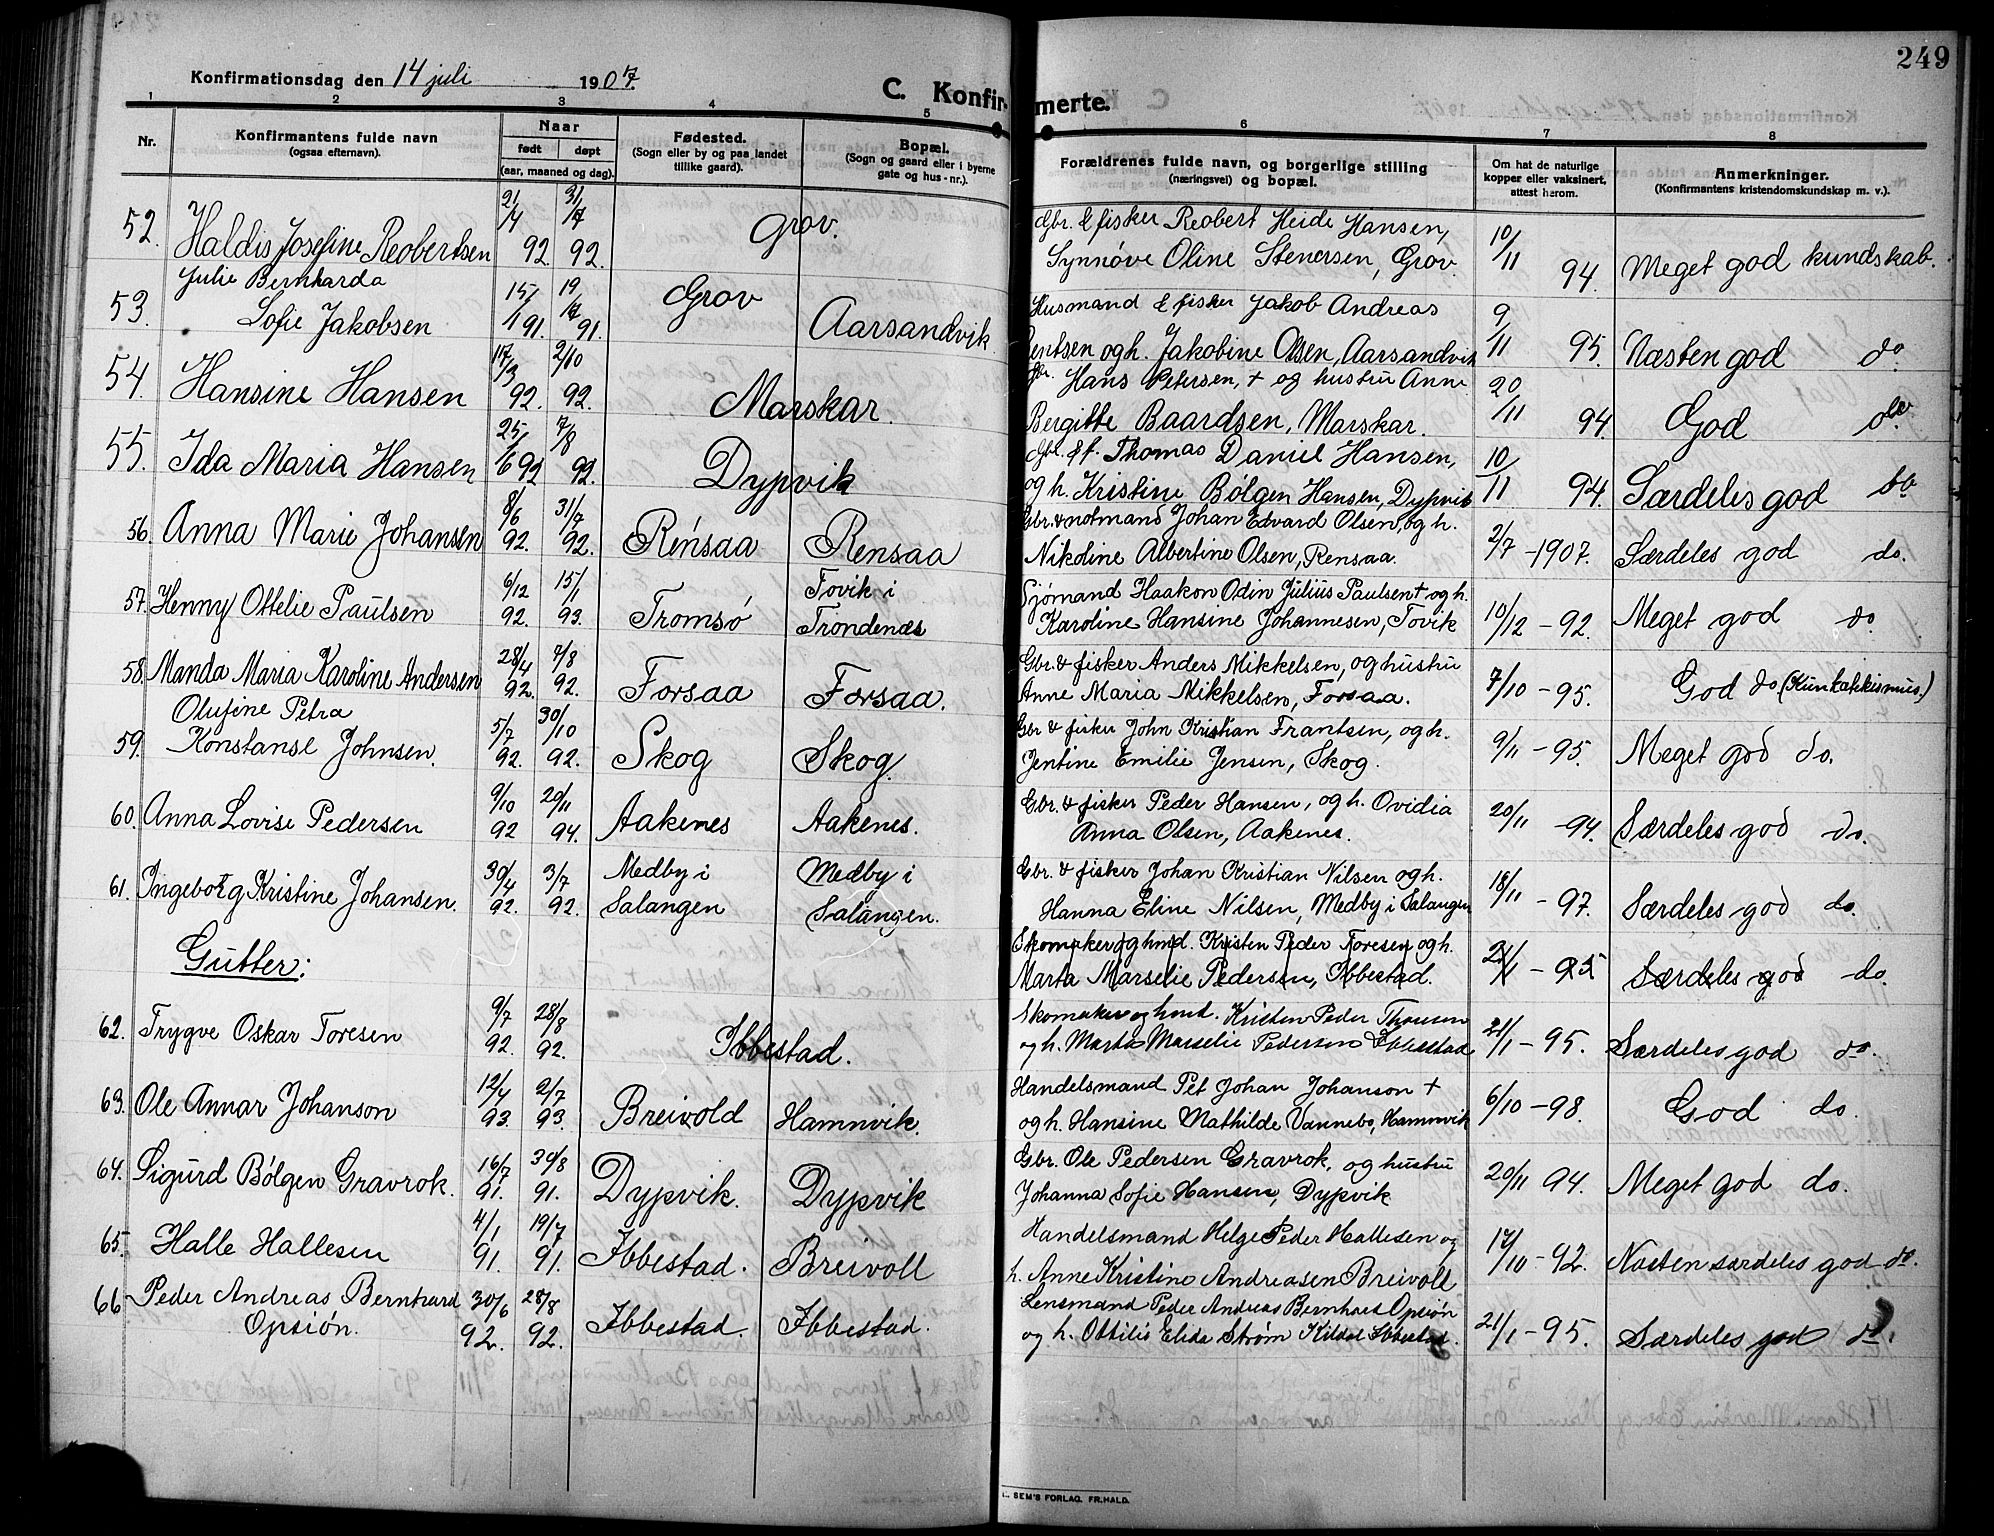 249
Konfirmationsdag den 14 juli 1907.
C. Konfirmerte.
1 2 3 4 5 6 7 8
Nr.
Konfirmantens fulde navn
(ogsaa efternavn).
Naar
født døpt
(aar, maaned og dag).
Fødested.
(Sogn eller by og paa landet
tillike gaard).
Bopæl.
(Sogn og gaard eller i byerne
gate og hus-nr.).
Forældrenes fulde navn, og borgerlige stilling
(næringsvei) og bopæl.
Om hat de naturlige
kopper eller vaksinert,
attest herom.
Anmerkninger.
(Konfirmantens kristendomskundskap m. v.).
52. Haldis Josefine Reobertsen 21/4 92. 31/7 92. Grov. Gbr. & fisker Reobert Heide Hansen,
Synnöve Oline Stenersen, Grov. 10/11 94. Meget god kundskab.
53. Julie Bernharda
Sofie Jakobsen 15/1 91. 19/4 91. Grov Aarsandvik Husmand & fisker Jakob Andreas
Bentsen og h. Jakobine Olsen, Aarsandvik 9/11 95. Næsten god do
54. Hansine Hansen 17/3 92. 2/10 92. Marskar. Gbr. Hans Petersen, + og hustru Anne
Bergitte Baardsen, Marskar. 20/11 94. God do
55. Ida Maria Hansen 25/6 92 7/8 92. Dypvik Gbr. & f. Thomas Daniel Hansen,
og h. Kristine Bölgen Hansen, Dypvik 10/11 94. Særdeles god do
56. Anna Marie Johansen 8/6 92. 31/7 92. Rensaa Rensaa Gbr. & notmand Johan Edvard Olsen, og h.
Nikoline Albertine Olsen, Rensaa. 2/7 - 1907. Særdeles god do.
57. Henny Ottelie Paulsen 6/12 92. 15/1 93. Tromsö Tovik i
Trondenæs Sjömand Haakon Odin Julius Paulsen + og h.
Karoline Hansine Johannesen, Tovik 10/12 - 92. Meget god do.
58. Manda Maria Karoline Andersen 28/4 92. 7/8 92. Forsaa Forsaa. Gbr. & fisker Anders Mikkelsen, og hustru
Anne Maria Mikkelsen, Forsaa. 7/10 - 95. God do (Kun katekismus.)
59. Olufine Petra
Konstanse Johnsen. 5/7 92. 30/10 92. Skog Skog. Gbr & fisker John Kristian Frantsen, og h.
Jentine Emilie Jensen, Skog. 9/11 - 95. Meget god do.
60. Anna Lovise Pedersen 9/10 92 20/11 94. Aakenes Aakenes. Gbr. & fisker Peder Hansen, og h. Ovidia
Anna Olsen, Aakenes. 20/11 - 94. Særdeles god do.
61. Ingeborg Kristine Johansen. 30/4 92. 3/7 92. Medby i
Salangen Medby i
Salangen. Gbr. & fisker Johan Kristian Nilsen og h.
Hanna Eline Nilsen, Medby i Salangen 18/11 - 97. Særdeles god do.
Gutter:
Skomaker og hmd. Kristen Peder Toresen og h.
Marta Marselie Pedersen, Ibbestad. 21/1 - 95 Særdeles god do.
62. Trygve Oskar Toresen 9/7 92. 28/8 92. Ibbestad. Skomaker og hmd. Kristen Peder Thoresen
og h. Marta Marselie Pedersen Ibbestad 21/1 - 95. Særdeles god do.
63. Ole Annar Johanson 12/4 93. 2/7 93. Breivold Hamnvik. Handelsmand Pet Johan Johanson +
og h. Hansine Mathilde Vannebo, Hamnvik 6/10 - 98. God do.
64. Sigurd Bölgen Gravrok. 16/7 91. 30/8 91. Dypvik. Dypvik Gbr. Ole Pedersen Gravrok, og hustru
Johanna Sofie Hansen, Dypvik 20/11 94. Meget god do.
65. Halle Hallesen 4/1 91. 19/7 91. Ibbestad. Breivoll Handelsmand Helge Peder Hallesen og
h. Anne Kristine Andreasen Breivoll 17/10 - 92. Næsten særdeles god do.
66. Peder Andreas Bernhard
Opsiön. 30/6 92. 28/8 92. Ibbestad. Ibbestad. Lensmand Peder Andreas Bernhard Opsiön
og h. Ottilie Elida Ström Kildal Ibbestad. 21/1 - 95. Særdeles god do.
SEM'S FORLAG. FR.HALD.